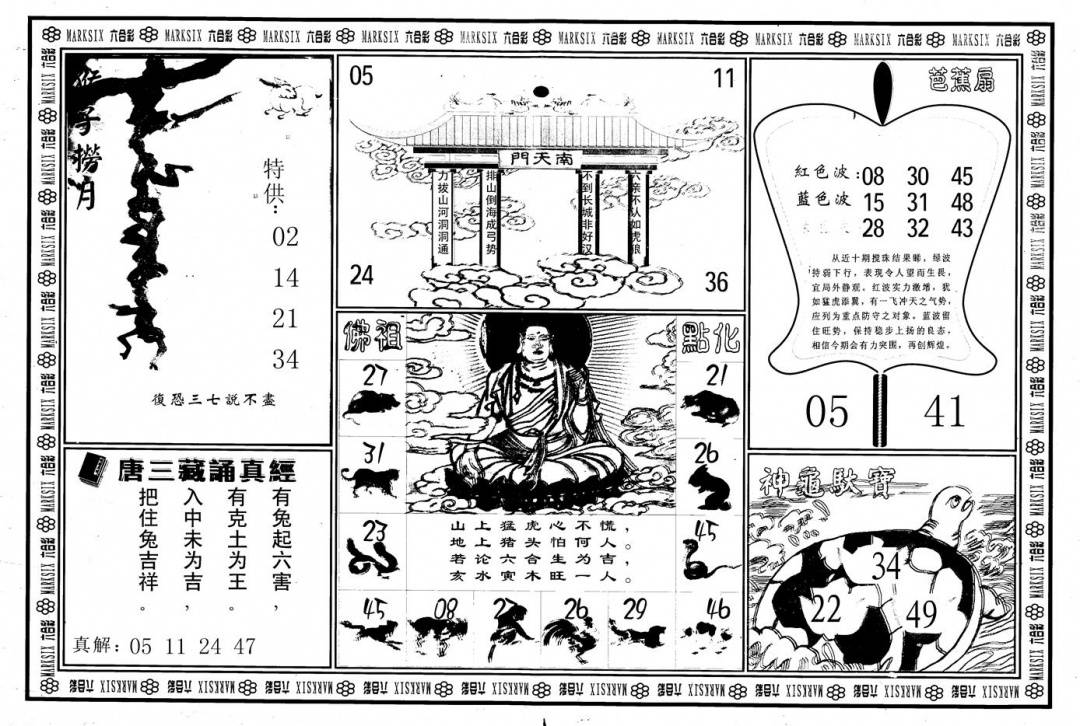 MARKSIX 六合彩 MARKSIX 六合彩 MARKSIX 六合彩 MARKSIX 六合彩 MARKSIX 六合彩 MARKSIX 六合彩 MARKSIX 六合彩 MARKSIX 六合彩 MARKSIX 六合彩 MARKSIX 六合彩
猴子撈月
特供：
02
14
21
34
復恐三七説不盡
唐三藏誦真經
有兔起六害，
有克土为王。
入中未为吉，
把住兔吉祥。
真解：05 11 24 47
05
11
南天門
力拔山河洞洞通
排山倒海成弓势
不到长城非好汉
六亲不认如虎狼
24
36
佛祖
點化
27
21
31
26
23
45
山上猛虎心不慌，
地上猪头怕何人。
若论六合生为吉，
亥水寅木旺一人。
45
08
26
29
46
芭蕉扇
紅色波：08 30 45
藍色波 15 31 48
28 32 43
从近十期搅珠结果睇，绿波
特弱下行，表现令人望而生畏，
宜局外静观。红波实力激增，犹
如猛虎添翼，有一飞冲天之气势，
应列为重点防守之对象。蓝波留
住旺势，保持稳步上扬的良态，
相信今期会有力突围，再创辉煌。
05
41
神龜馱寶
34
22
49